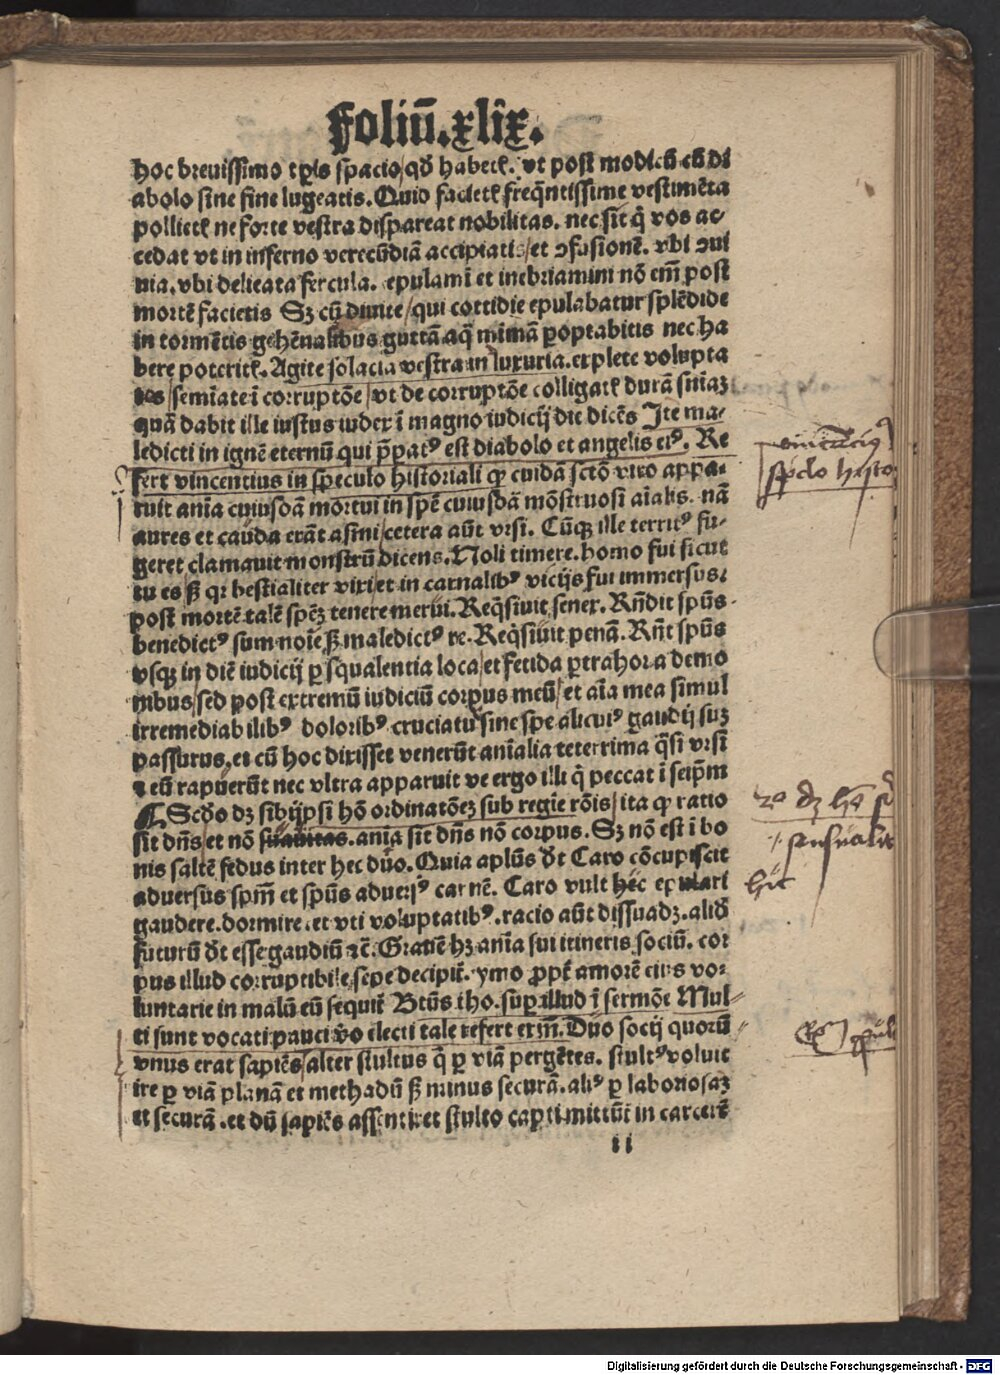 Foliũ.xlix.
hoc breuissimo tp̃is spacio/qđ habetꝭ. vt post modicũ cũ di
abolo sine fine lugeatis. Quid facietꝭ freq̃ntissime vestimẽta
pollietꝭ ne forte vestra dispareat nobilitas. nec sit q̃ vos ac-
cedat vt in inferno verecũdiã accipiatis/et ꝯfusionẽ. vbi ꝯui
uia. vbi delicata fercula. epulamĩ et inebriamini nõ em̃ post
mortẽ facietis Sꝫ cũ diuite/qui cottidie epulabatur splẽdide
in tormẽtis gehẽnalibus guttã aq̃ mĩmã ꝑoptabitis nec ha
bere poteritꝭ. Agite solacia vestra in luxuria. explete volupta
tes/semĩate ĩ corruptõe/vt de corruptõe colligatꝭ durã sniãꝫ
quã dabit ille iustus iudex ĩ magno iudicij die dicẽs Ite ma-
ledicti in ignẽ eternũ qui p̃patꝰ est diabolo et angelis eiꝰ. Re
fert vincentius in speculo historiali ꝙ cuidã sctõ viro appa-
ruit anĩa cuiusdã mortui in spẽ cuiusdã mõstruosi aĩalis. nã
aures et cauda erãt asini/cetera aũt vrsi. Cũqꝫ ille territꝰ fu-
geret clamauit monstrũ dicens. Noli timere. homo fui sicut
tu es sꝫ qꝛ bestialiter vixi/et in carnalibꝰ vicijs fui immersus.
post mortẽ talẽ spẽꝫ tenere merui. Reqͥsiuit senex. Rñdit spũs
benedictꝰ sum noĩe sꝫ maledictꝰ re. Reqͥsiuit penã. Rñt spũs
vsqꝫ in diẽ iudicij ꝑ squalentia loca/et fetida ꝑtrahor a demo
nibus/sed post extremũ iudiciũ corpus meũ/et aĩa mea simul
irremediabilibꝰ doloribꝰ cruciatu sine spe alicuiꝰ gaudij suꝫ
passurus. et cũ hoc dixisset venerũt anĩalia teterrima q̃si vrsi
⁊ eũ rapuerũt nec vltra apparuit ve ergo illi q̃ peccat ĩ seip̃m
¶ Scđo dꝫ sibijpsi hõ ordinatõeꝫ sub regie rõis/ita ꝙ ratio
sit dñs/et nõ suauitas. anĩa sit dñs nõ corpus. Sꝫ nõ est ĩ bo
nis saltẽ fedus inter hec duo. Quia aplũs đt Caro cõcupiscit
aduersus spm̃ et spũs aduersꝰ carnẽ. Caro vult hẽc epulari
gaudere. dormire. et vti voluptatibꝰ. racio aũt dissuadꝫ. aliđ
futurũ đt esse gaudiũ ⁊c̃. Grauẽ hꝫ anĩa sui itineris sociũ. cor
pus illud corruptibile/sepe decipit̃. ymo ꝓpt̃ amorẽ eius vo-
luntarie in malũ eũ sequit̃ Btũs tho. suꝑ illud ĩ sermõe Mul-
ti sunt vocati pauci v̊o electi tale refert exm̃. Duo socij quorũ
vnus erat sapiẽs/alter stultus q̃ ꝑ viã pergẽtes. stultꝰ voluit
ire ꝑ viã planã et methadũ sꝫ minus securã. aliꝰ ꝑ laboriosaꝫ
et securã. et dũ sapiẽs assentiret stulto capti mittũt̃ in carcerẽ
ii
spclo histo
sensualit
Digitalisierung gefördert durch die Deutsche Forschungsgemeinschaft - DFG